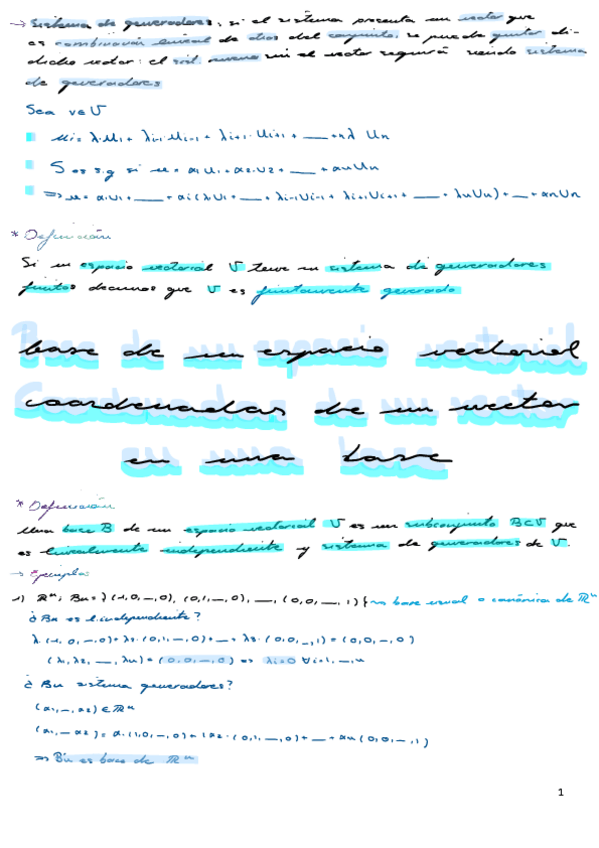 → Sistema de generadores: si el sistema presenta un vector que
es combinación lineal de otros del conjunto, se puede quitar di-
dicho vector: el sist. nuevo sin el vector seguirá siendo sistema
de generadores
Sea v∈V
ui = λ1·u1 + λi-1·ui-1 + λi+1·ui+1 + __ + nλ un
S es s.g si u = α1u1 + α2·u2 + __ + αnun
⇒ u = α1u1 + __ + αi(λu1 + __ + λi-1ui-1 + λi+1ui+1 + __ + λnun) + __ + αnun
* Definición
Si un espacio vectorial V tiene un sistema de generadores
finitos decimos que V es finitamente generado
base de un espacio vectorial
coordenadas de un vector
en una base
* Definición
Una base B de un espacio vectorial V es un subconjunto B⊂V que
es linealmente independiente y sistema de generadores de V.
→ Ejemplos
1) ℝⁿ; Bn = {(1,0,_,0), (0,1,_,0), __, (0,0,_,1)} → base usual o canónica de ℝⁿ
¿Bn es l.independiente?
λ·(1,0,_,0) + λ2·(0,1,_,0) + __ + λ3·(0,0,_,1) = (0,0,_,0)
(λ1, λ2, __, λn) = (0,0,_,0) ⇒ λi=0 ∀i=1,_,n
¿Bn sistema generadores?
(α1,_,α2) ∈ ℝⁿ
(α1,_α2) = α·(1,0,_,0) + (α2·(0,1,_,0) + __ + αn(0,0,_,1)
⇒ Bn es base de ℝⁿ
1